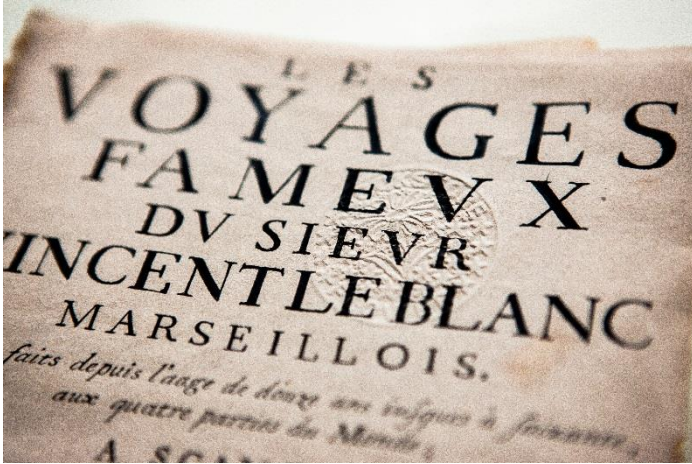 LES
VOYAGES
FAMEVX
DV SIEVR
VINCENT LE BLANC
MARSEILLOIS.
faits depuis l'aage de douze ans iusques à soixante,
aux quatre parties du Monde,
A SCAN